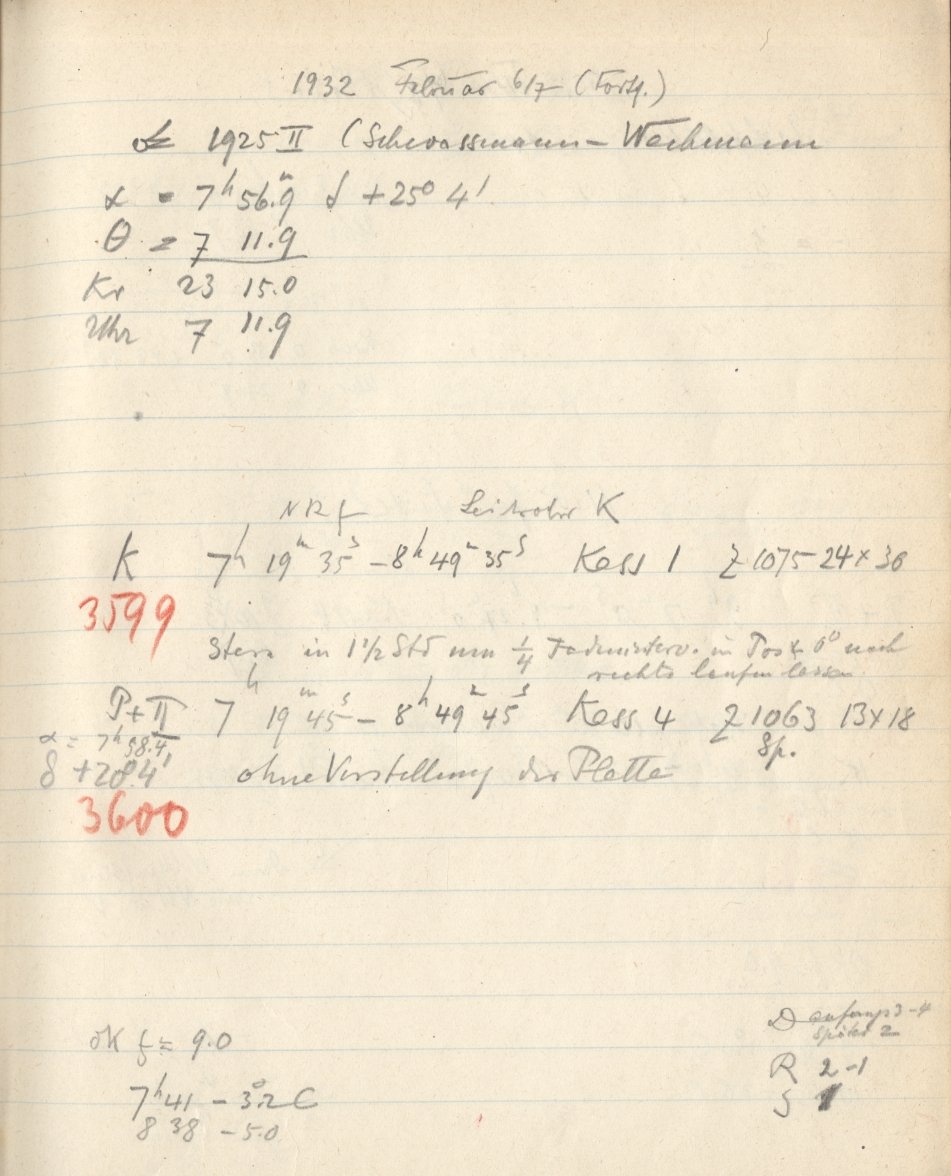 1932 Februar 6/7 (Forts.)
1925 II (Schwassmann-Wachmann
α = 7ʰ 56.ᵐ9 δ +25° 4'
θ = 7 11.9
Kr 23 15.0
Uhr 7 11.9
NR f Leitrohr K
K 7ʰ 19ᵐ 35ˢ – 8ʰ 49ᵐ 35ˢ Kass 1 Z 1075 24×30
3599
Stern in 1 1/2 Std um 1/4 Fadeninterv. in Pos 0° nach
rechts laufen lassen
P+II 7ʰ 19ᵐ 45ˢ – 8ʰ 49ᵐ 45ˢ Kass 4 Z 1063 13×18
Sp.
α = 7ʰ 58.4
δ +28° 4' ohne Verstellung der Platte
3600
ÖK f = 9.0
7ʰ 41 – 3.°2 C
8 38 – 5.0
D anfangs 3-4
später 2
R 2-1
S 1